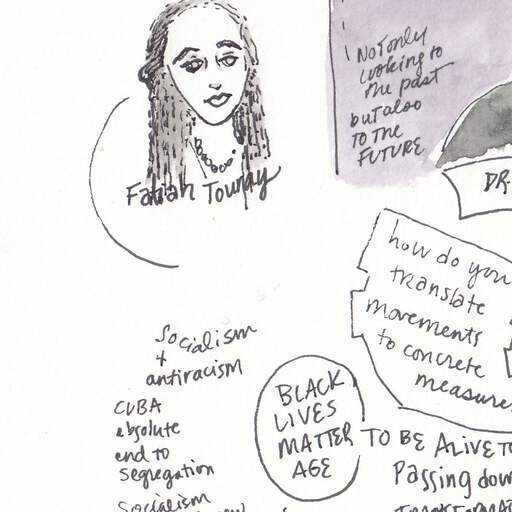 Farah Tounsy
Not only
looking to
the past
but also
TO THE
FUTURE
DR
how do you
translate
movements
to concrete
measures
Socialism
+
antiracism
CUBA
absolute
end to
segregation
Socialism
BLACK
LIVES
MATTER
AGE
TO BE ALIVE TO
Passing down